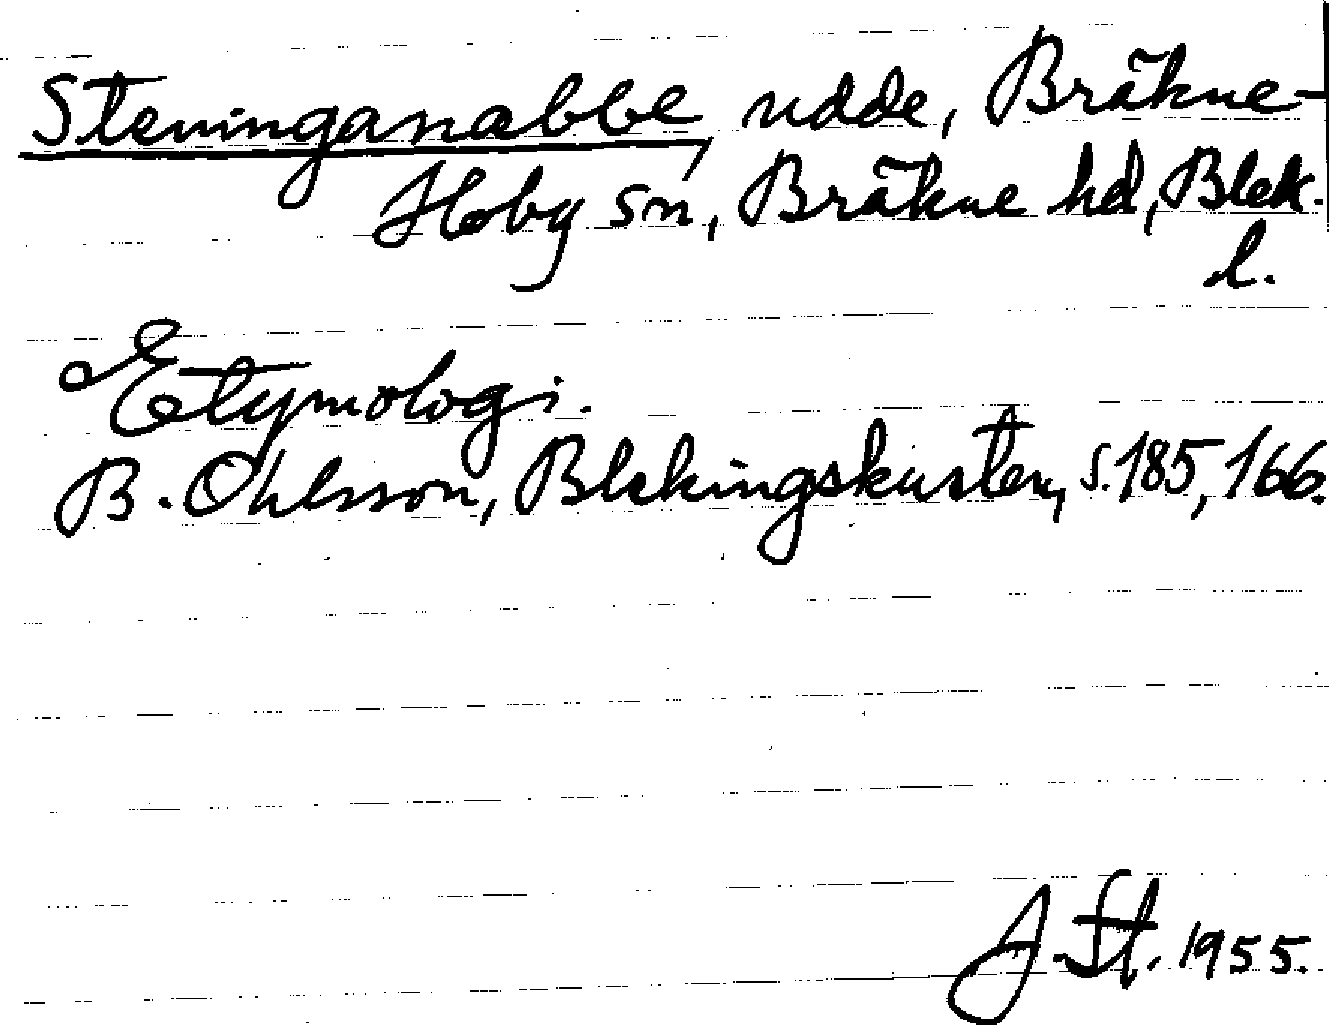 Steninganabbe, udde, Bräkne-
Hoby sn, Bräkne hd, Blek.
l.
Etymologi.
B. Ohlsson, Blekingskusten, s. 185, 166.
J. St. 1955.